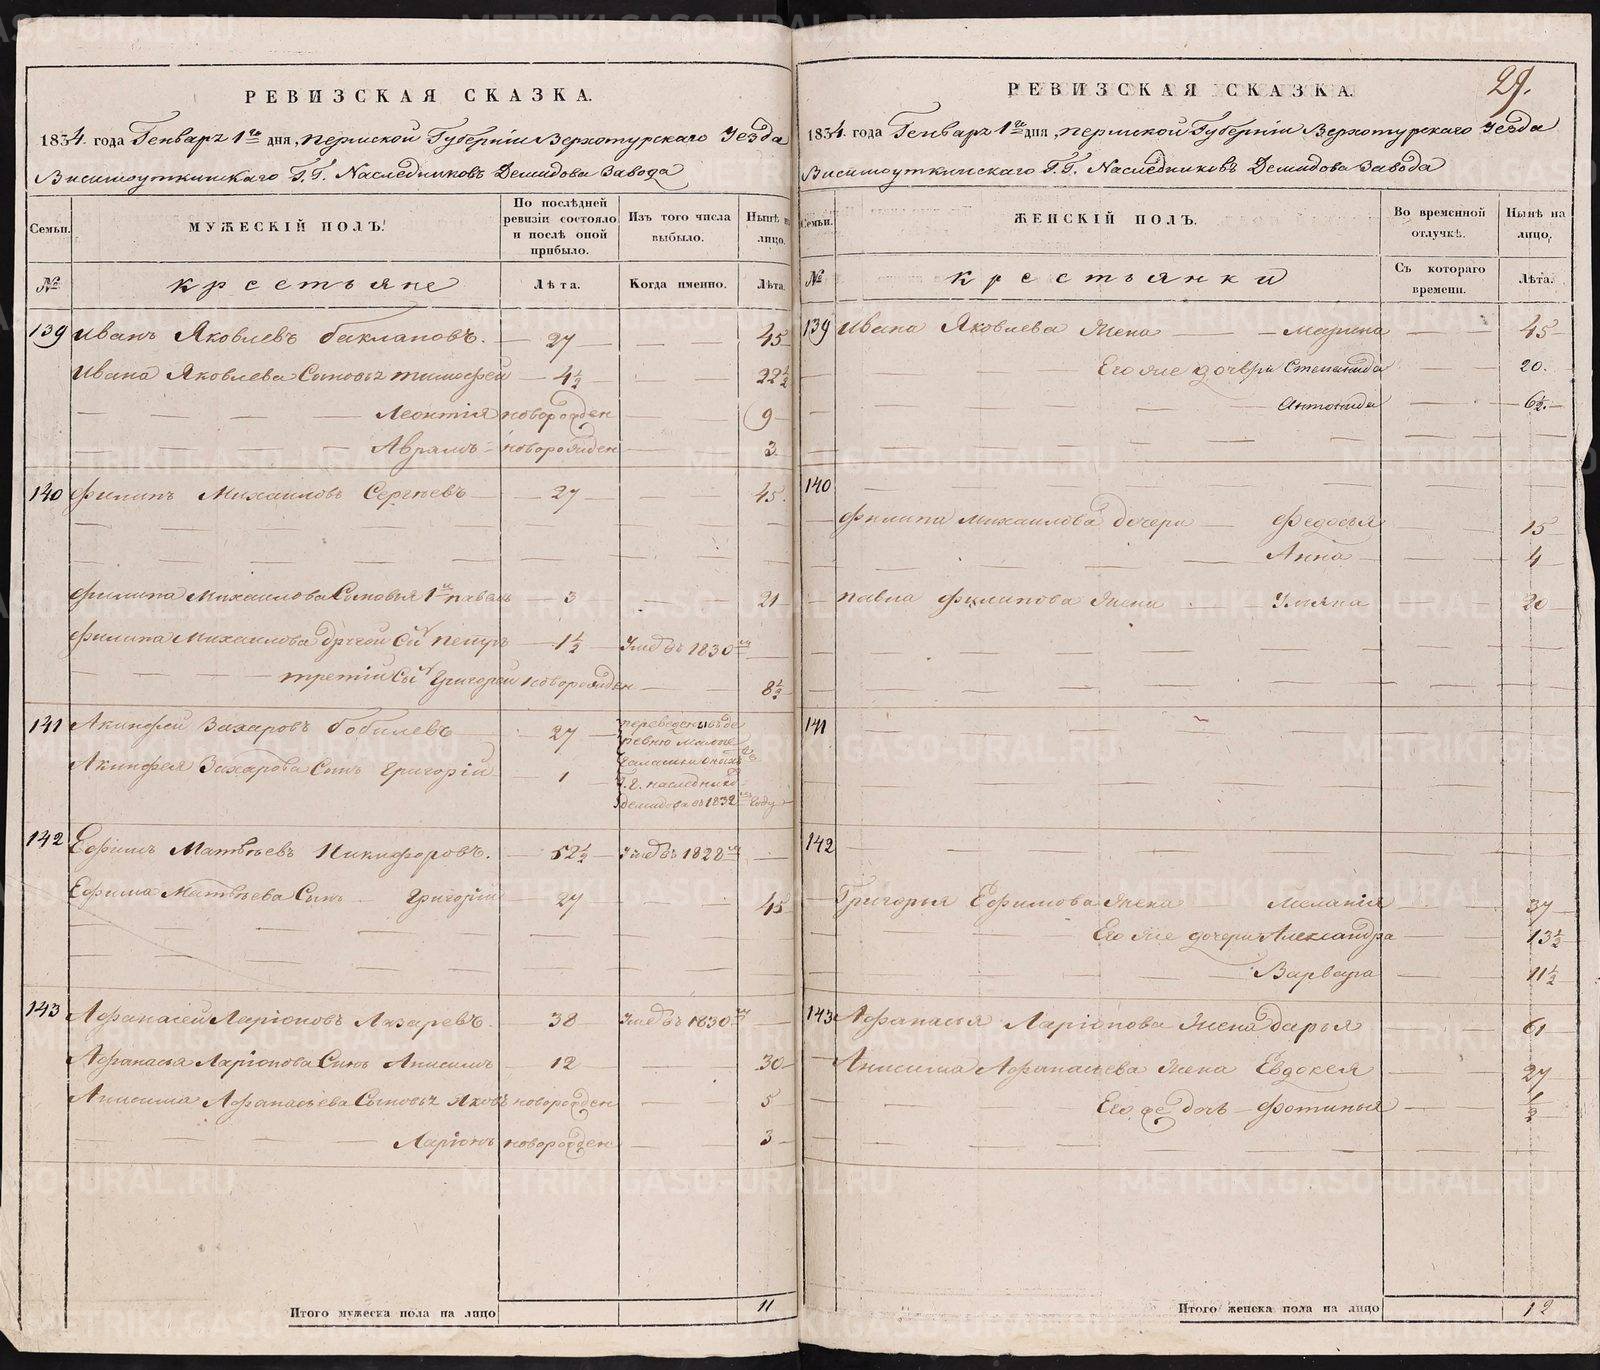 РЕВИЗСКАЯ СКАЗКА.
1834. года Генваря 1го дня, Пермской Губернiи Верхотурскаго Уезда
Висимоуткинскаго Г.Г. Наследниковъ Демидова Завода
Семьи.
МУЖЕСКІЙ ПОЛЪ.
По послѣдней ревизіи состояло и послѣ оной прибыло.
Изъ того числа выбыло.
Нынѣ на лицо.
№
крестьяне
Лѣта.
Когда именно.
Лѣта.
139 Иванъ Яковлевъ Баклановъ. 27 45
Ивана Яковлева Сыновья Тимофей 4½ 22½
Леонтiй новорожден 9
Аврамъ новорожден 3
140 Филипъ Михаиловъ Сергѣевъ 27 45.
Филипа Михаилова Сыновья 1й Павелъ 3 21
Филипа Михаилова Другой Сынъ 1½ Умеръ 1830
третiй Сынъ Григорей новорожден 8½
141 Акинфей Захаровъ Бобылевъ 27 переведены въ деревню
Акинфея Захарова Сынъ Григорiй 1 Г.Г. наследниковъ Демидова въ 1832 году
142 Ефимъ Матвѣевъ Никифоровъ. 52½ Умеръ 1828
Ефима Матвѣева Сынъ Григорiй 27 45
143 Афанасiей Ларiоновъ Лазаревъ. 38 Умеръ 1830
Афанасья Ларiонова Сынъ Анисимъ 12 30
Анисима Афанасьева Сыновья Яковъ новорожден 5
Ларiонъ новорожден 3
Итого мужеска пола на лицо 11
29.
РЕВИЗСКАЯ СКАЗКА.
1834. года Генваря 1го дня, Пермской Губернiи Верхотурскаго Уезда
Висимоуткинскаго Г.Г. Наследниковъ Демидова Завода
Семьи.
ЖЕНСКІЙ ПОЛЪ.
Во временной отлучкѣ.
Нынѣ на лицо.
№
крестьянки
Съ котораго времени.
Лѣта.
139 Ивана Яковлева Жена Марина 45
Его же дочери Степанида 20.
Антонида 6½.
140
Филипа Михаилова дочери Федосья 15
Анна 4
Павла Филипова Жена Ульяна 20
141
142
Григорья Ефимова Жена Меланiя 37
Его же дочери Александра 13½
Варвара 11½
143 Афанасья Ларiонова Жена Дарья 61
Анисима Афанасьева Жена Евдокея 27
Его же дочь Фотинья ½
Итого женска пола на лицо 12
METRIKI.GASO-URAL.RU